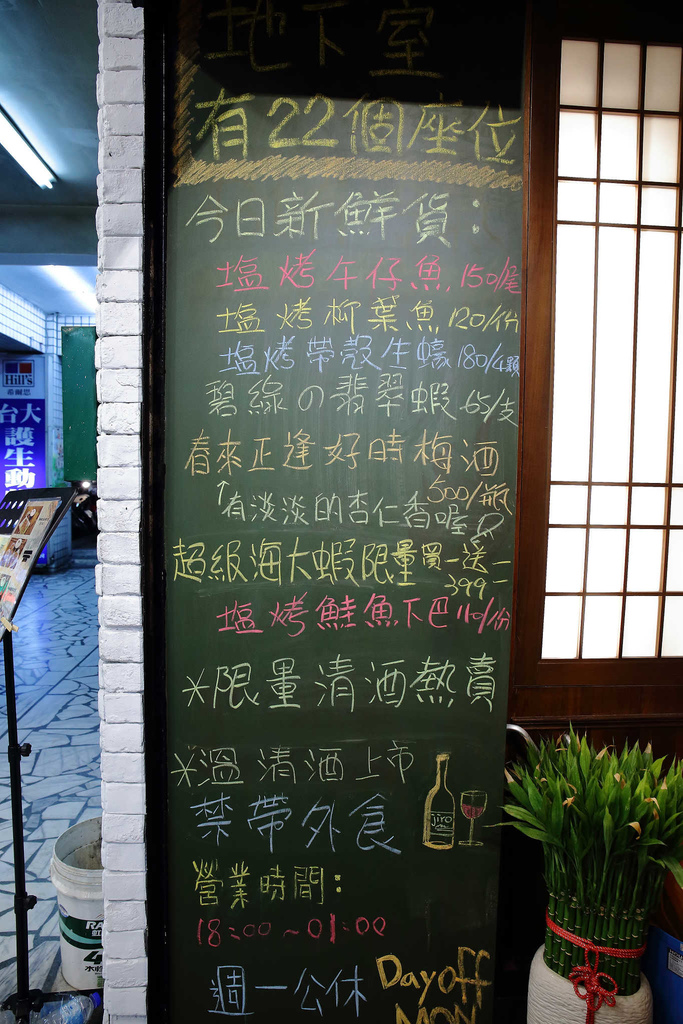 地下室
有22個座位
今日新鮮貨：
塩烤午仔魚 150/尾
塩烤柳葉魚 120/份
塩烤帶殼生蠔 180/4顆
碧綠の翡翠蝦 65/支
春來正逢好時梅酒
500/瓶
↑有淡淡的杏仁香喔
超級海大蝦限量買一送一
399
塩烤鮭魚下巴 110/份
*限量清酒熱賣
*溫清酒上市
jiro
禁帶外食
營業時間：
18:00~01:00
週一公休
Day off
MON
Hill's
希爾思
台大
護生動